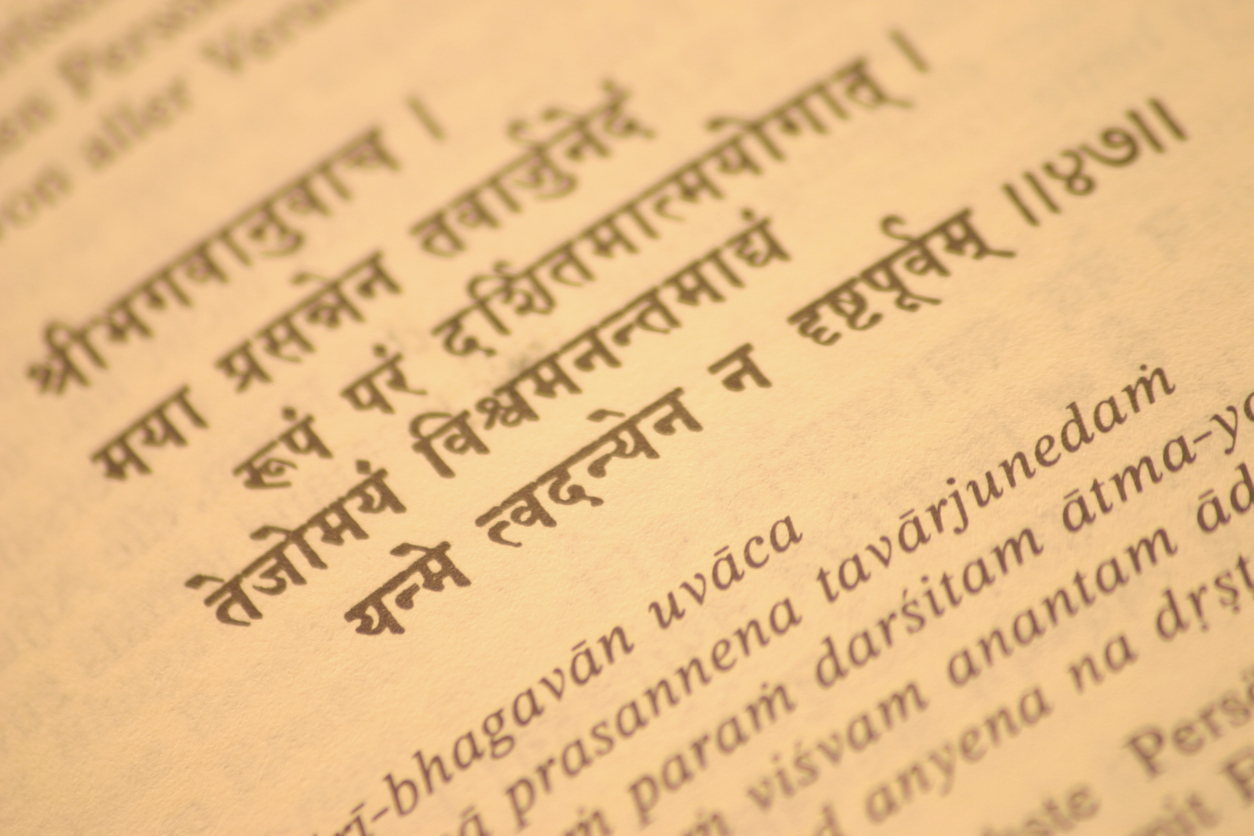 aller
श्रीभगवानुवाच ।
मया प्रसन्नेन तवार्जुनेदं
रूपं परं दर्शितमात्मयोगात् ।
तेजोमयं विश्वमनन्तमाद्यं
यन्मे त्वदन्येन न दृष्टपूर्वम् ॥४७॥
rī-bhagavān uvāca
ā prasannena tavārjunedaṁ
ṁ paraṁ darśitam ātma-yo
ṁ viśvam anantam ād
d anyena na dṛṣṭ